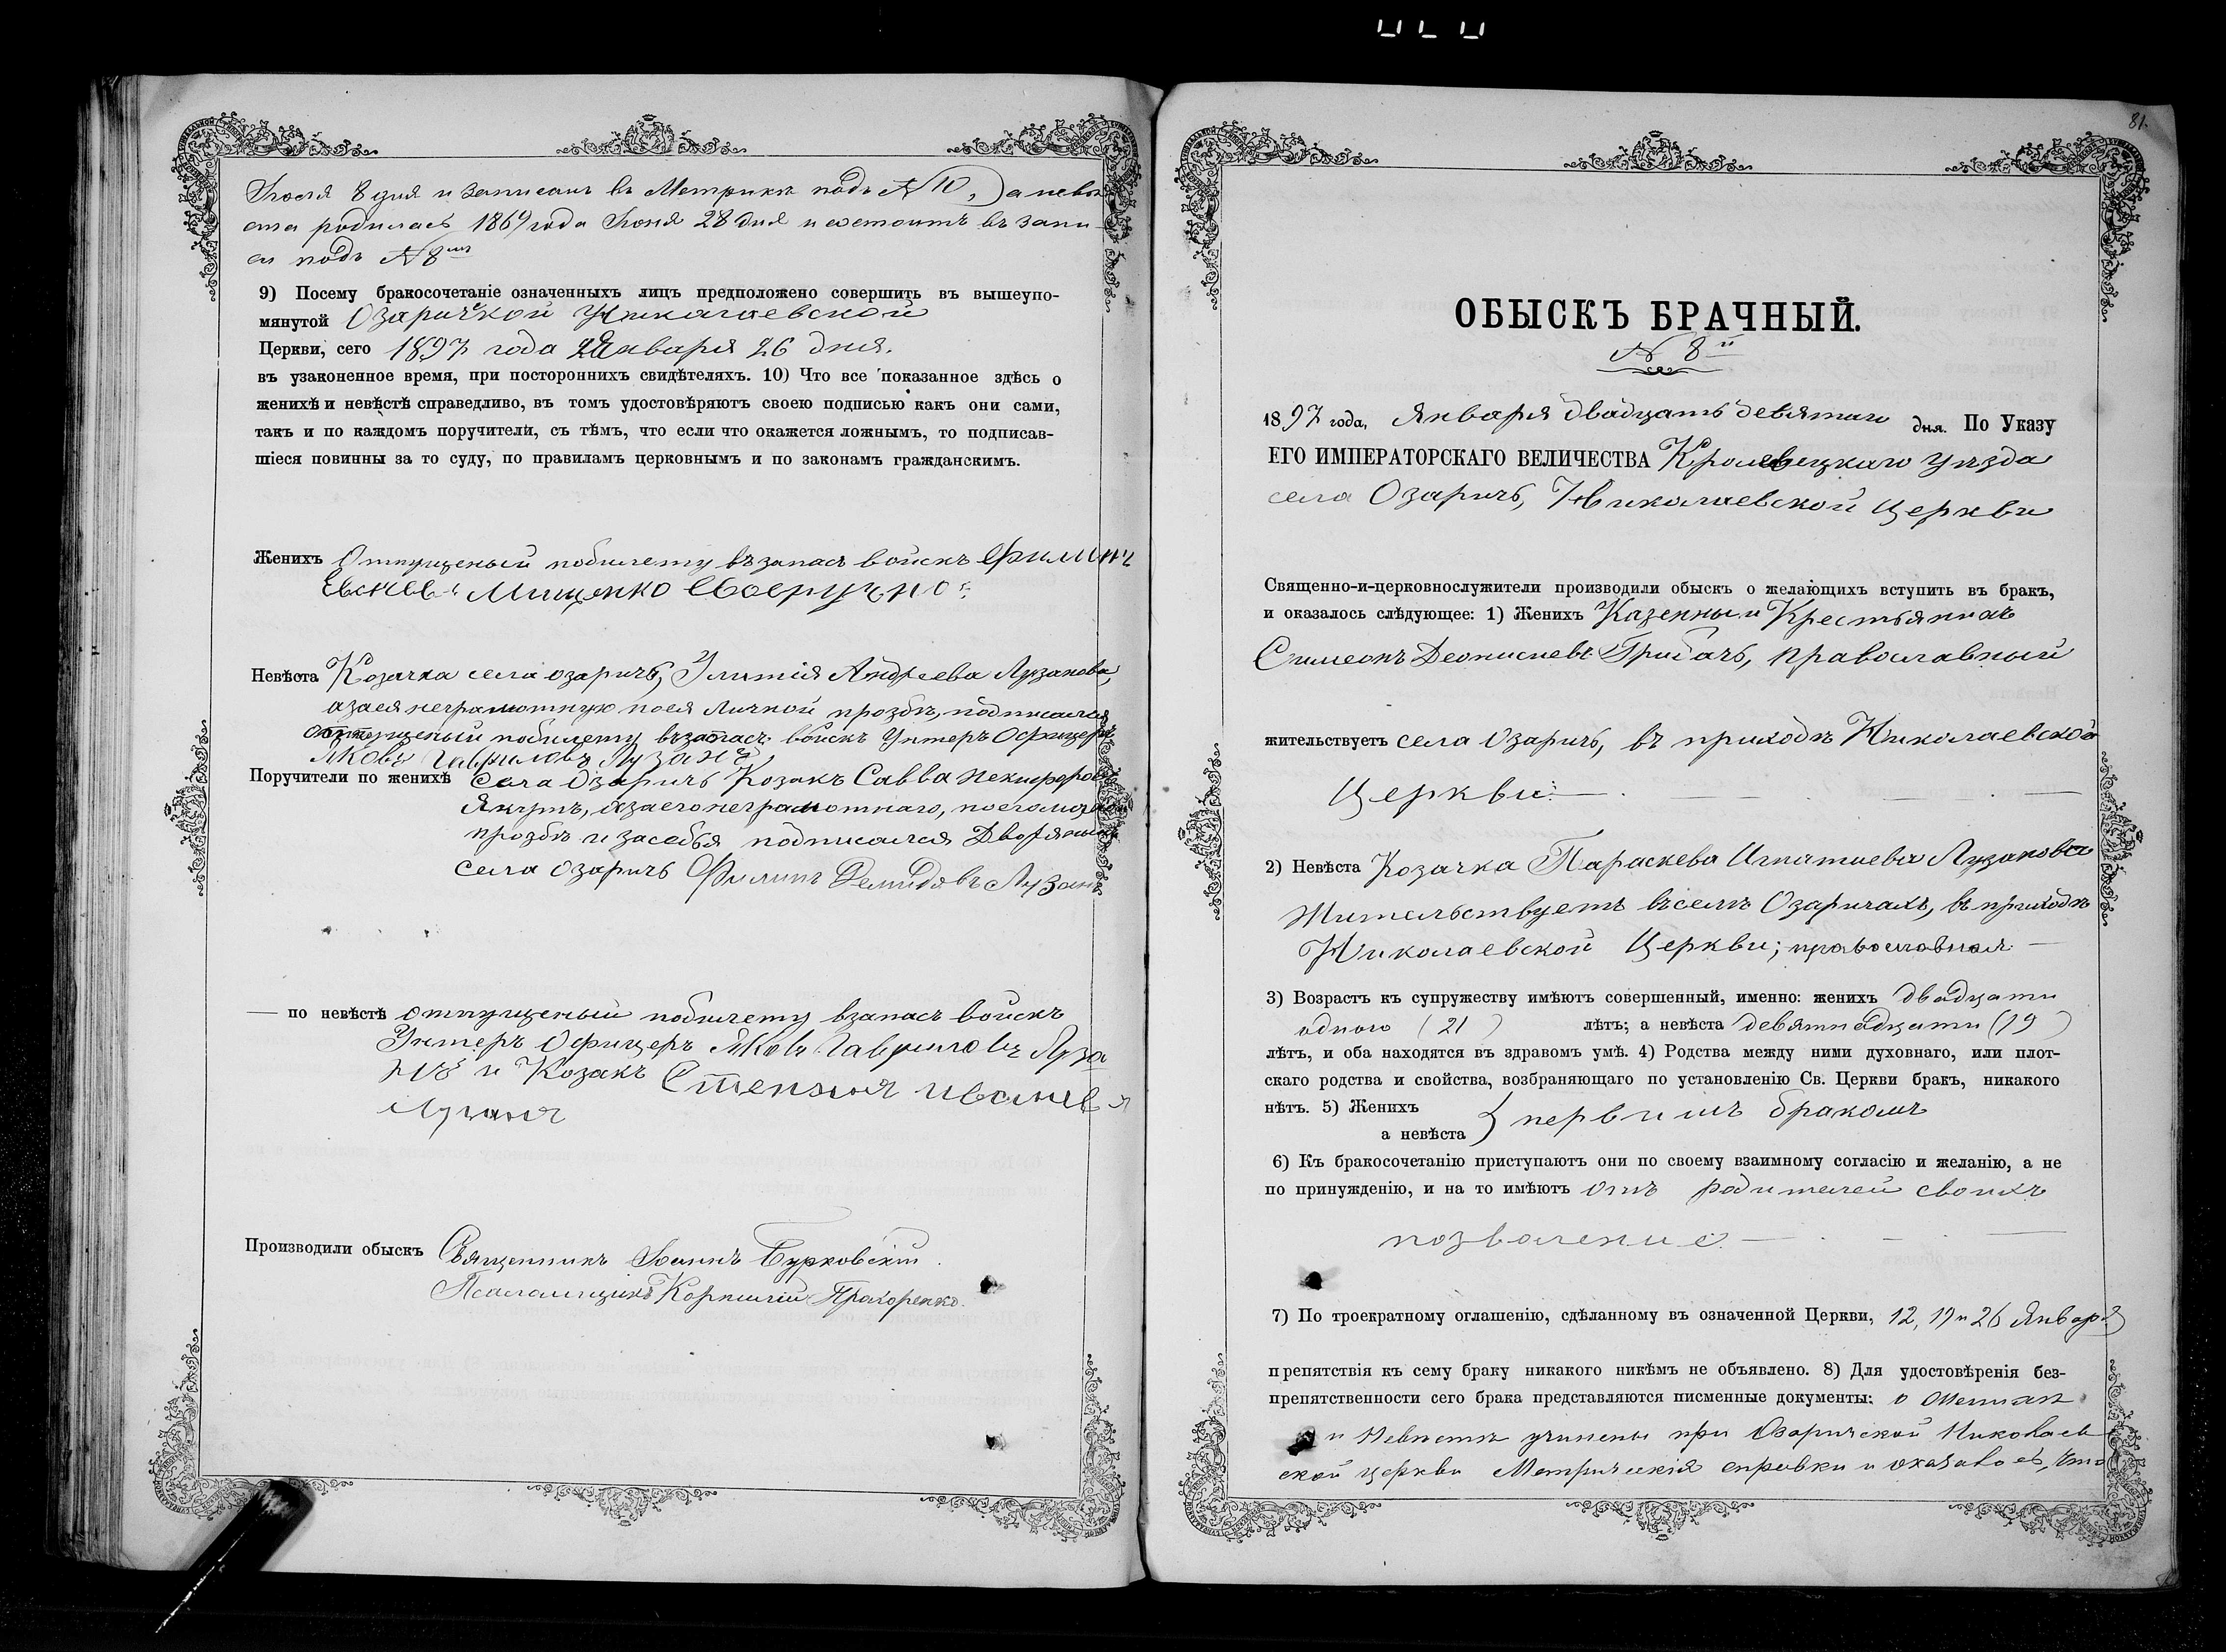 Іюля 8 дня и записанъ въ Метрикѣ подъ № 10,) а невѣ-
ста родилась 1869 года Іюня 28 дня и состоитъ въ запи-
си подъ № 8мъ
9) Посему бракосочетаніе означенныхъ лицъ предположено совершить въ вышеупо-
мянутой Озаричской Николаевской
Церкви, сего 1897 года Января 26 дня.
въ узаконенное время, при постороннихъ свидѣтеляхъ. 10) Что все показанное здѣсь о
женихѣ и невѣстѣ справедливо, въ томъ удостовѣряютъ своею подписью какъ они сами,
такъ и по каждомъ поручители, съ тѣмъ, что если что окажется ложнымъ, то подписав-
шіеся повинны за то суду, по правиламъ церковнымъ и по законамъ гражданскимъ.
Женихъ Отпущеный побилету въ запасъ войскъ Филипъ
Мищенко своеручно
Невѣста Козачка села озаричъ, Андреева Лузанова,
а за ея неграмотную по ея личной прозбѣ, подписался
отпущеный побилету въ запасъ войскъ Унтеръ Офицеръ
Яковъ Гавриловъ Лузанъ
Поручители по женихѣ села Озаричъ Козакъ Савва Некифоровъ
Якутъ, а за его неграмотнаго, по его личной
прозбѣ и засебъя подписался Дворянинъ
села озаричъ Филипъ Демидовъ Лузанъ
— по невѣстѣ отпущеный побилету взапасъ войскъ
Унтеръ Офицеръ Яковъ Гавриловъ Луза
нъ и Козакъ Степанъ
Лузанъ
Производили обыскъ Священникъ Іоаннъ Бурковскій.
Псаломщикъ Корнилій Прохоренко.
81.
ОБЫСКЪ БРАЧНЫЙ.
№ 8й
1897 года, Января двадцать девятаго дня. По Указу
ЕГО ИМПЕРАТОРСКАГО ВЕЛИЧЕСТВА Кролевецкаго уѣзда
села Озаричъ, Николаевской церкви
Священно-и-церковнослужители производили обыскъ о желающихъ вступить въ бракъ,
и оказалось слѣдующее: 1) Женихъ Казенный Крестьянинъ
Симеонъ Деонисиевъ Грибачъ, православный
жительствуетъ села Озаричъ, въ приходѣ Николаевской
Церкви: —
2) Невѣста Козачка Параскева Игнатиева Лузанова
Жительствуетъ въ селѣ Озаричахъ, въ приходѣ
Николаевской Церкви; православная —
3) Возрастъ къ супружеству имѣютъ совершенный, именно: женихъ двадцати
одного (21) лѣтъ; а невѣста девятнадцати (19)
лѣтъ, и оба находятся въ здравомъ умѣ. 4) Родства между ними духовнаго, или плот-
скаго родства и свойства, возбраняющаго по установленію Св. Церкви бракъ, никакого
нѣтъ. 5) Женихъ
а невѣста } первимъ бракомъ
6) Къ бракосочетанію приступаютъ они по своему взаимному согласію и желанію, а не
по принужденію, и на то имѣютъ отъ родителей своихъ
позволение. —
7) По троекратному оглашенію, сдѣланному въ означенной Церкви, 12, 19 и 26 Января
препятствія къ сему браку никакого никѣмъ не объявлено. 8) Для удостовѣренія без-
препятственности сего брака представляются писменные документы: о Женихѣ
и Невѣстѣ учинены при Озаричской Николаев-
ской церкви Метрическія справки и оказалось, что